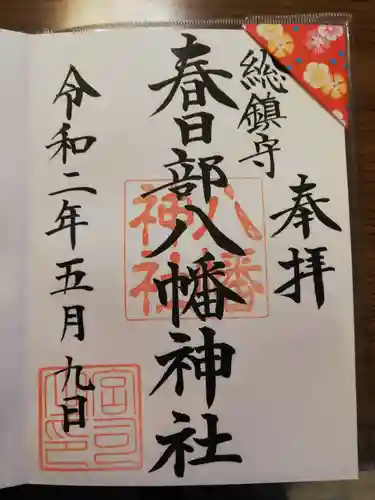 奉拝
総鎮守
春日部八幡神社
八幡
神社
令和二年五月九日
宮司之印